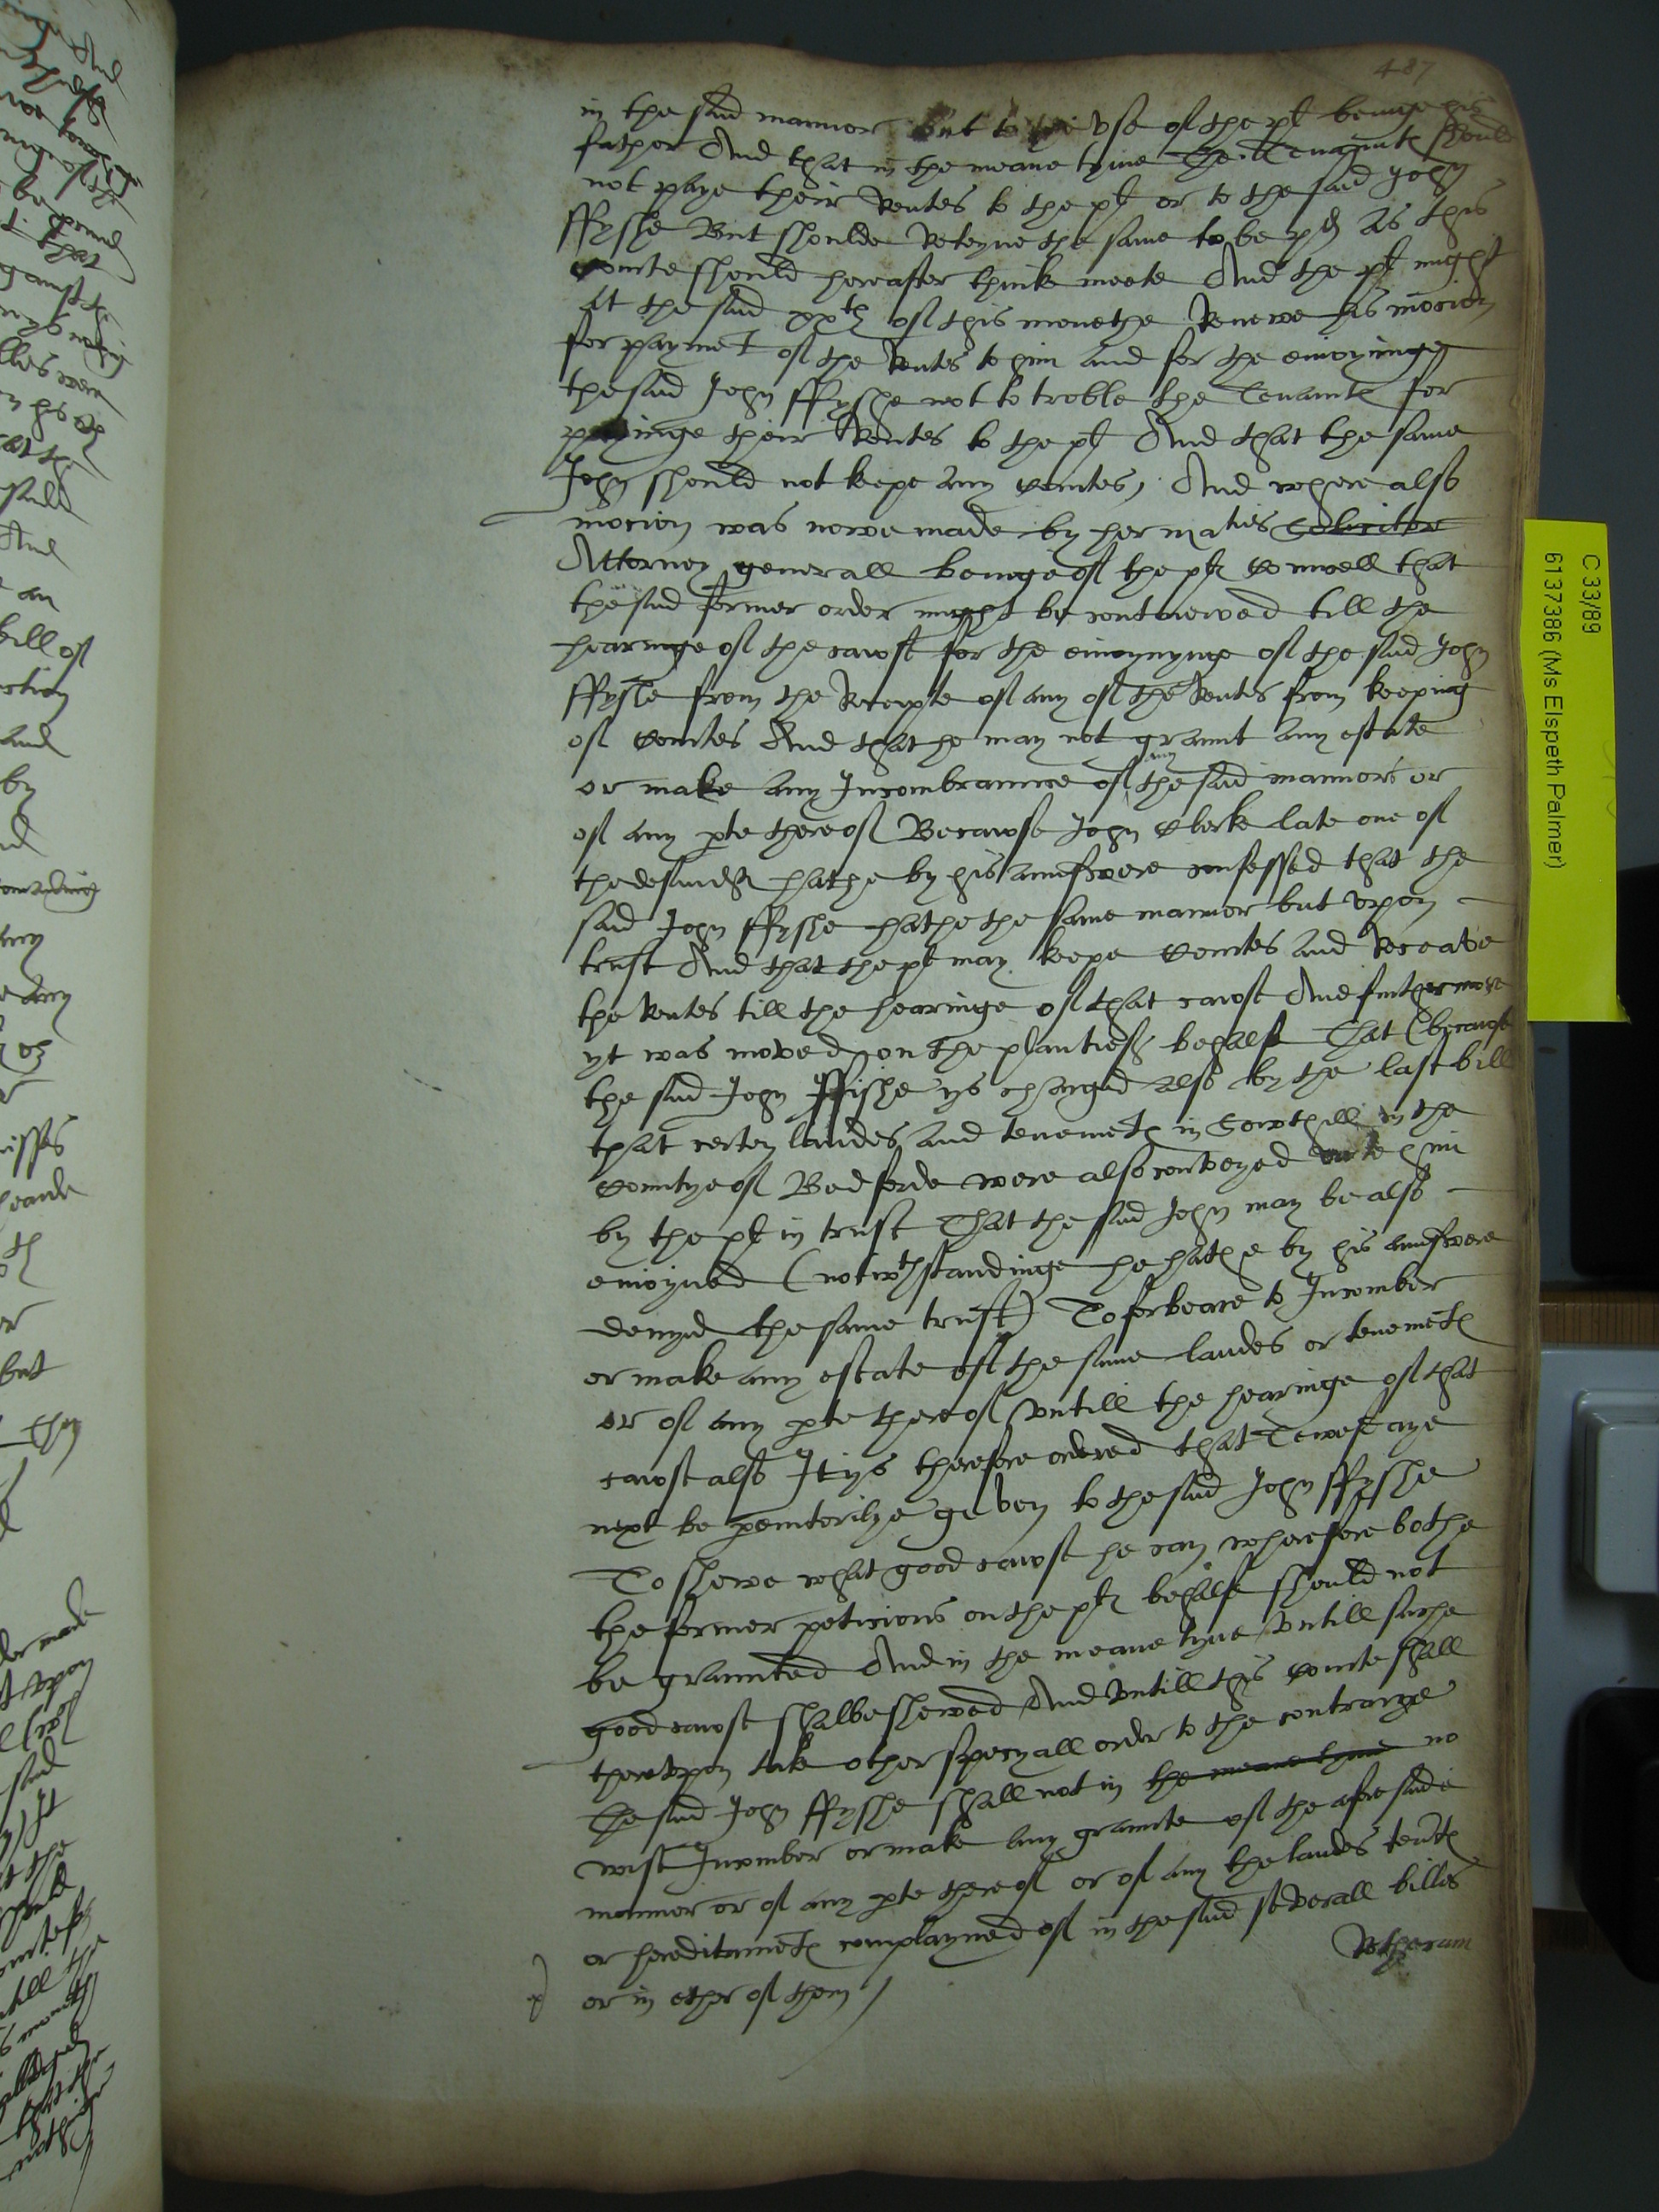 487
in the said mannor but to the vse of the plt beinge his
father And that in the meane tyme the Tenauntes should
not paye their Rentes to the plt or to the said John
ffyshe But shoulde Reteyne the same to be pd As this
Courte should hereafter think meete And the plt might
At the said xxth of this monethe Renewe his mocion
for paymet of the Rentes to him and for the enioyninge
the said John ffyshe not to troble the Tenauntes for
payinge their Rentes to the plt And that the same
John should not kepe any Courtes, And where also
mocion was nowe made by her maties Soliciter
Attorney generall beinge of the plts Counsell that
the said former order might be contynewed till the
hearinge of the cawse for the enioynynge of the said John
ffyshe from the Receipte of any of the Rentes from keeping
of Courtes And that he may not graunt any estate
or make any Incombraunce of the said mannors or
any
of any pte thereof Becawse John Clerke late one of
the defendtes hathe by his aunswere confessed that the
said John ffyshe hathe the same mannor but vpon
trust And that the plt may keepe Courtes and Receave
the Rentes till the hearinge of that cawse And furthermore
yt was moved on the plantiefes behalfe That (becawse
the said John ffishe ys charged also by the last bill
that certen landes and tenemetes in Sowthill in the
Countye of Bedforde were also conveyed vnto him
by the plt in trust That the said John may be also
enioyned (notwthstandinge he hathe by his aunswere
denyed the same trust) To forbeare to Incomber
or make any estate of the same landes or tenemetes
or of any pte thereof vntill the hearinge of that
cawse also It ys therefore ordered that Tewesdaye
next be peremtorilye geven to the said John ffyshe
To shewe what good cawse he can wherefore bothe
the former peticions on the plts behalfe should not
be graunted And in the meane tyme vntill suche
good cawse shalbe shewed And vntill this Courte shall
therevpon take other specyall order to the contrarye
The said John ffyshe shall not in the meane tyme no
wise Incomber or make any graunte of the aforesaide
mannor or of any pte thereof or of any the landes tentes
or hereditametes complayned of in the said severall billes
or in ether of them /
C 33/89
6137386 (Ms Elspeth Palmer)